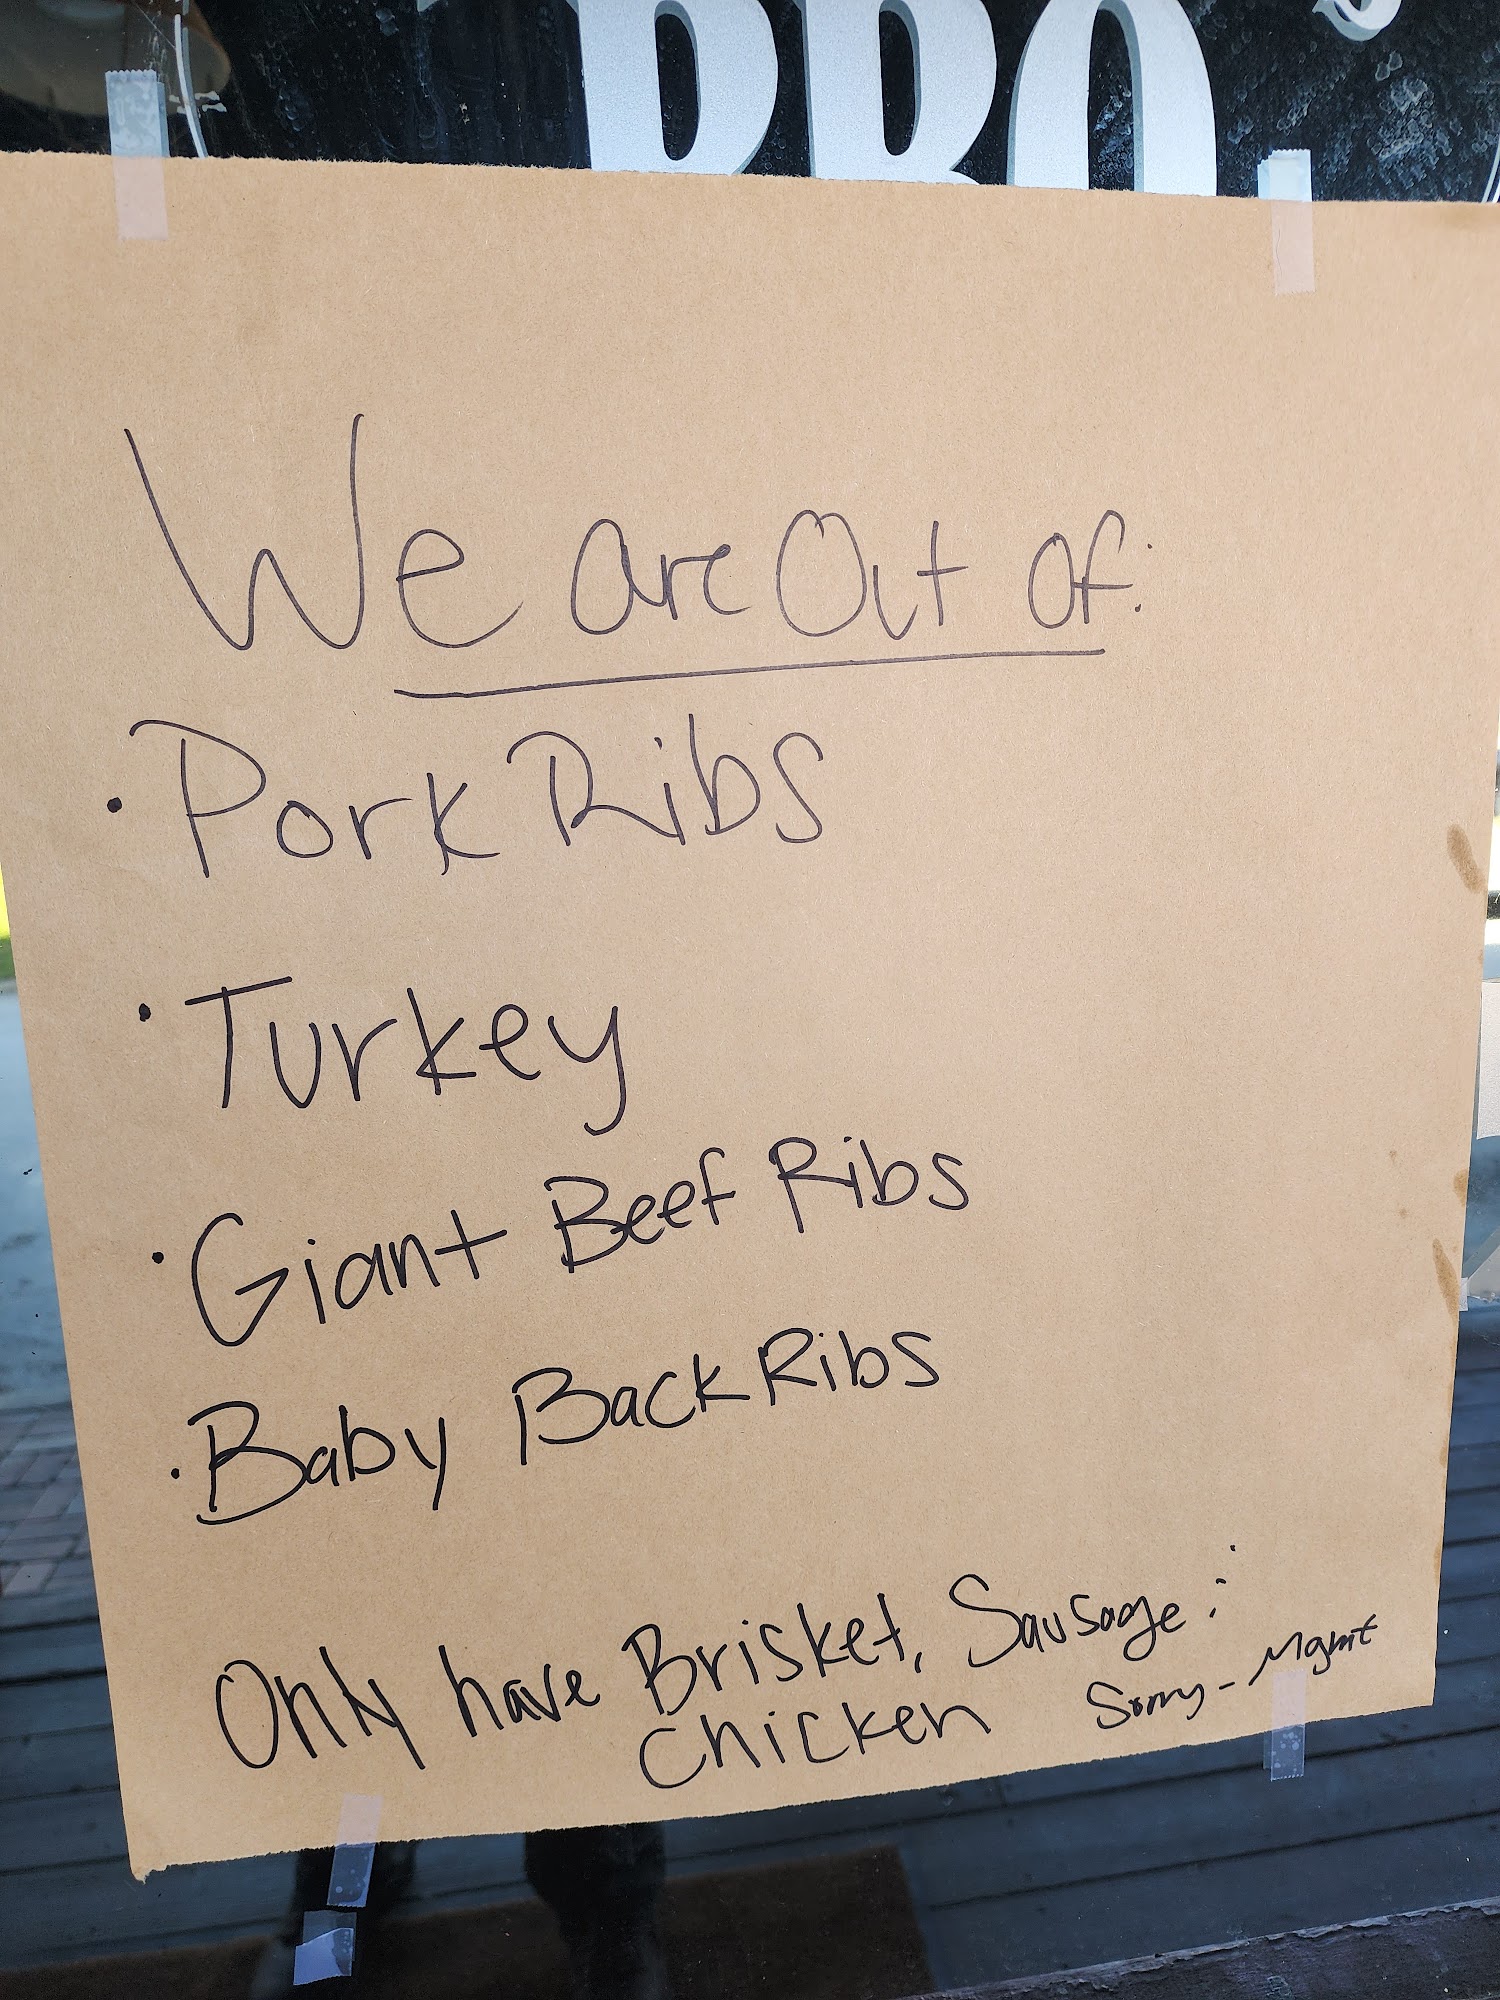 BBQ
We are Out of:
• Pork Ribs
• Turkey
• Giant Beef Ribs
• Baby Back Ribs
Only have Brisket, Sausage :
Chicken Sorry - Mgmt